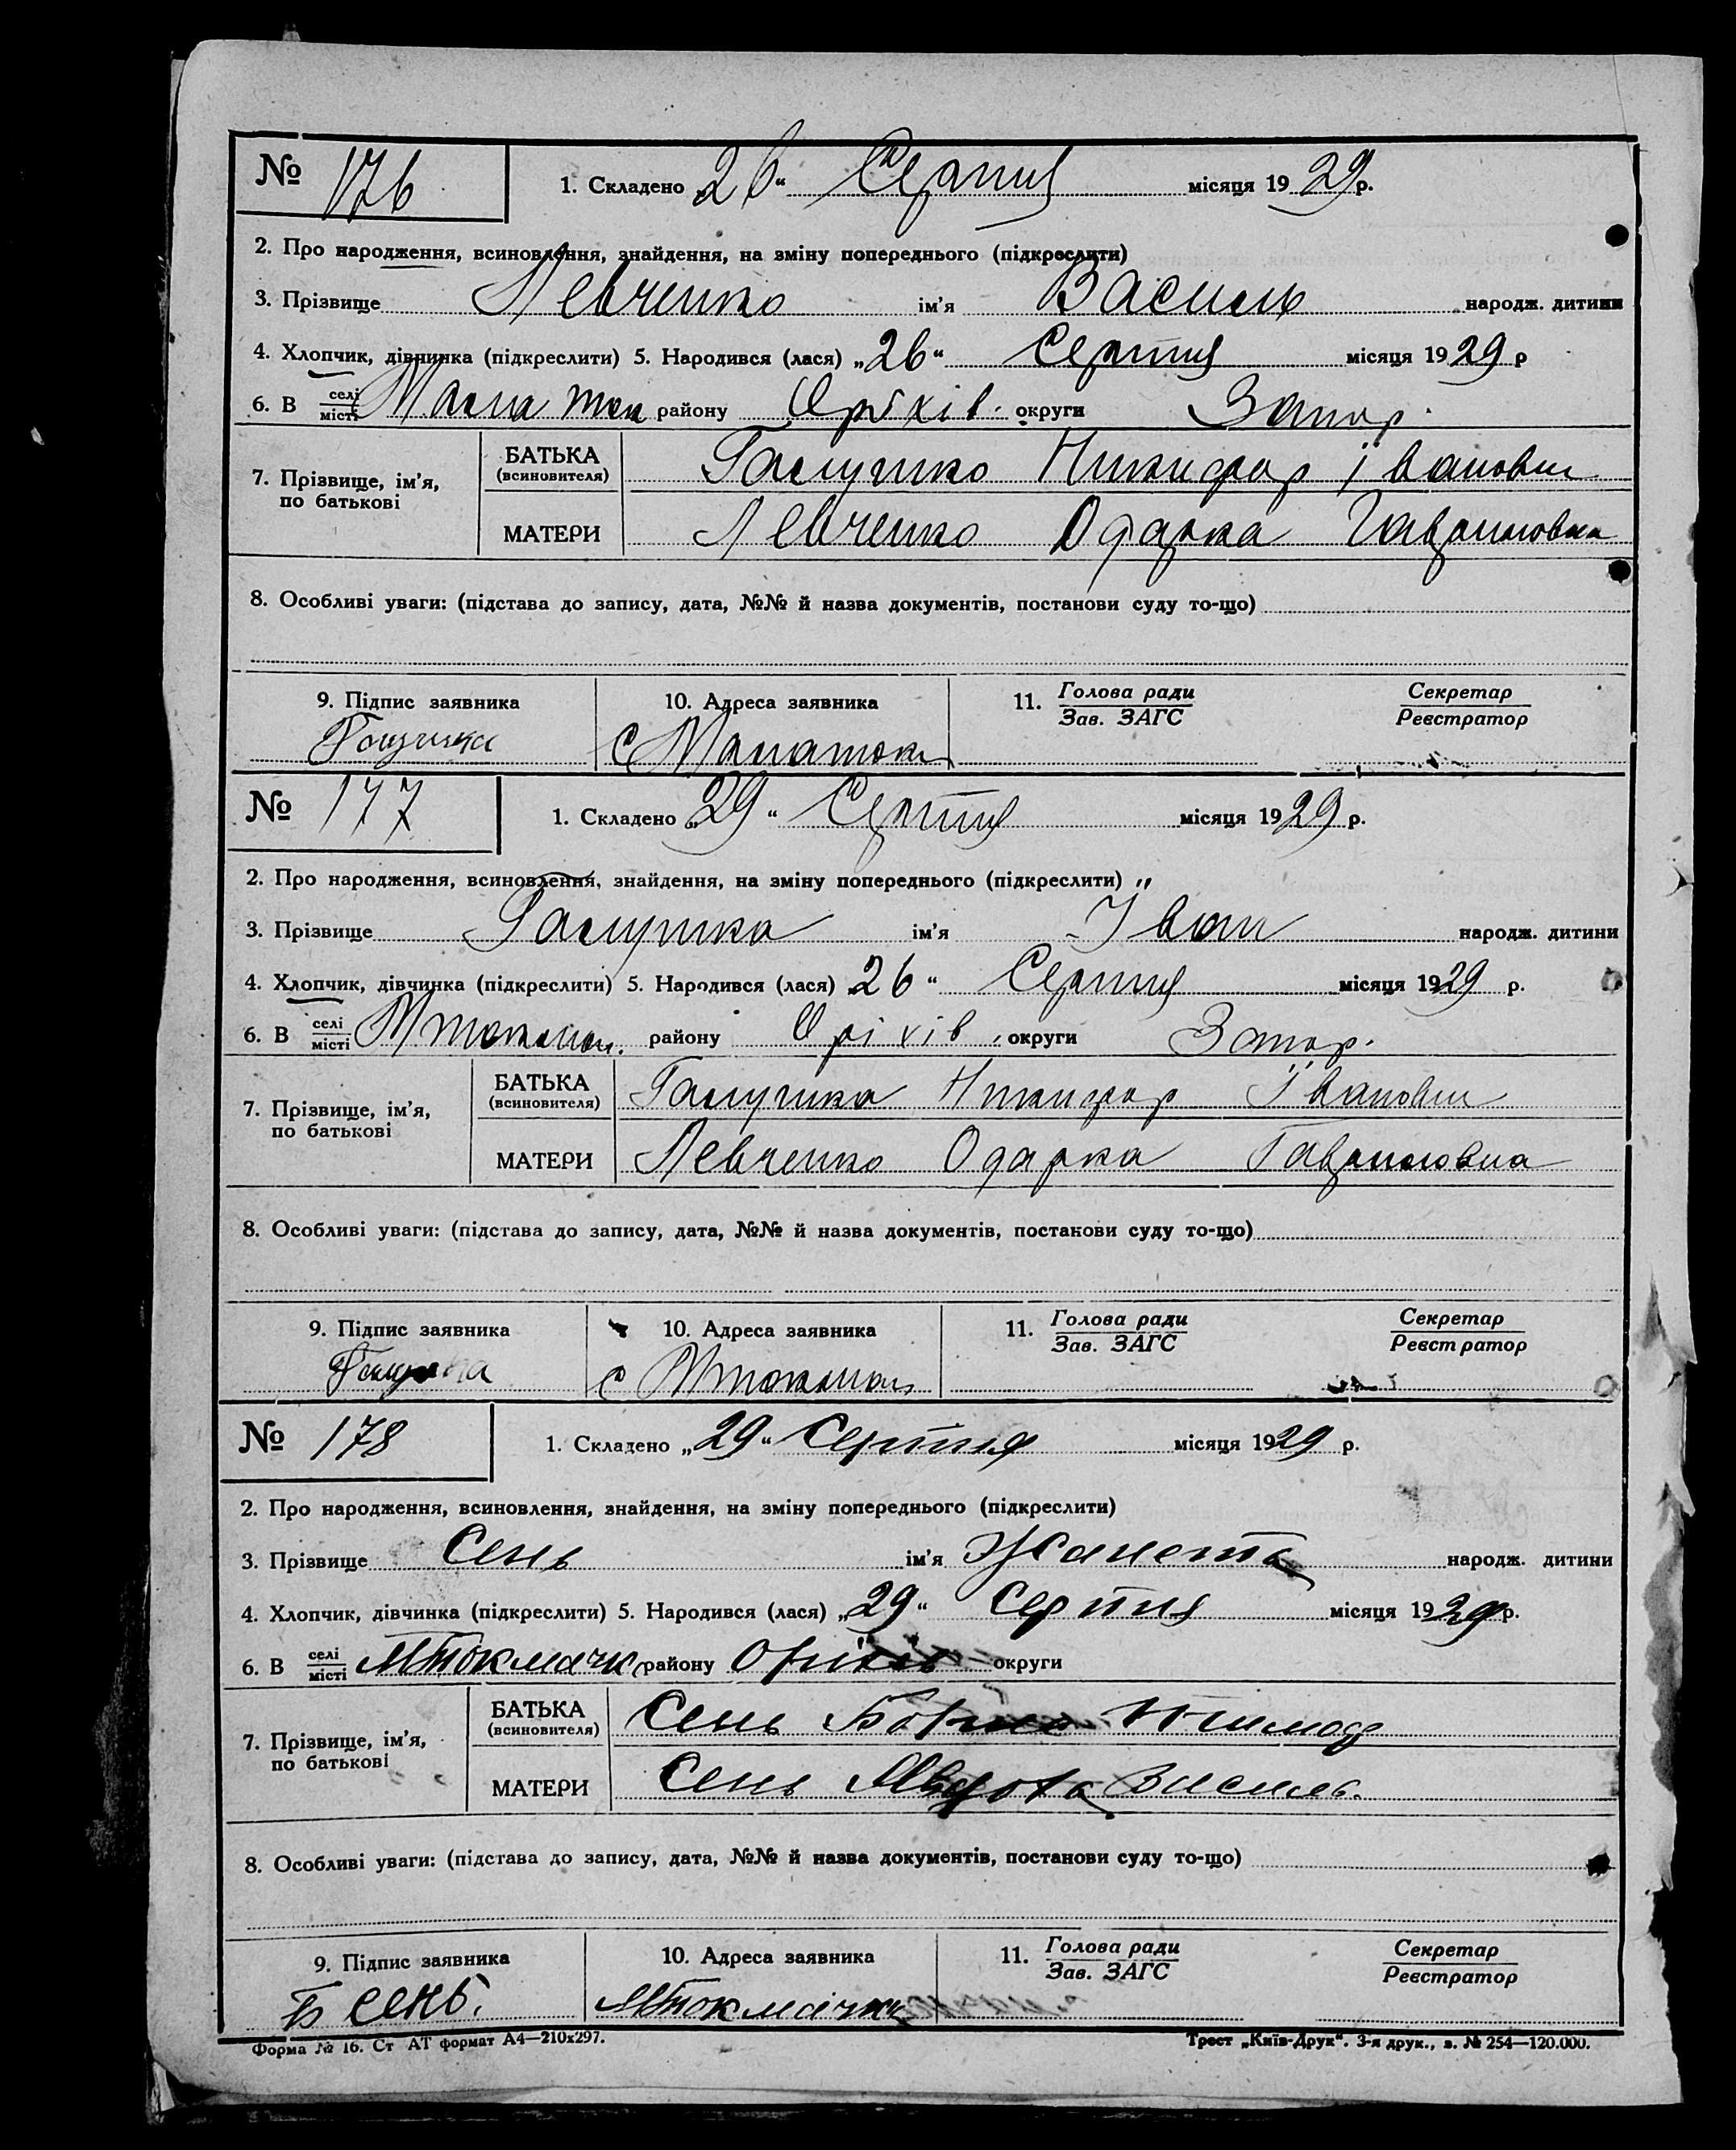 № 176
1. Складено „26“ Серпня місяця 1929 р.
2. Про народження, всиновлення, знайдення, на зміну попереднього (підкреслити)
3. Прізвище Левченко ім'я Василь народж. дитини
4. Хлопчик, дівчинка (підкреслити) 5. Народився (лася) „26“ Серпня місяця 1929 р
6. В селі місті Мала Ток району Оріхів. округи Запор.
БАТЬКА (всиновителя) Галушко Никифор Івановин
7. Прізвище, ім'я, по батькові
МАТЕРИ Левченко Одарка Гавриловна
8. Особливі уваги: (підстава до запису, дата, №№ й назва документів, постанови суду то-що)
9. Підпис заявника 10. Адреса заявника 11. Голова ради Зав. ЗАГС Секретар Реєстратор
с Малаток
№ 177
1. Складено „29“ Серпня місяця 1929 р.
2. Про народження, всиновлення, знайдення, на зміну попереднього (підкреслити) „
3. Прізвище Галушка ім'я Іван народж. дитини
4. Хлопчик, дівчинка (підкреслити) 5. Народився (лася) 26“ Серпня місяця 1929 р.
6. В селі місті району Оріхів. округи Запор.
БАТЬКА (всиновителя) Галушка Никифор
7. Прізвище, ім'я, по батькові
МАТЕРИ Левченко Одарка Гавриловна
8. Особливі уваги: (підстава до запису, дата, №№ й назва документів, постанови суду то-що)
9. Підпис заявника 10. Адреса заявника 11. Голова ради Зав. ЗАГС Секретар Реєстратор
Галушка с
№ 178
1. Складено „29“ Серпня місяця 1929 р.
2. Про народження, всиновлення, знайдення, на зміну попереднього (підкреслити)
3. Прізвище Сень ім'я Жанета народж. дитини
4. Хлопчик, дівчинка (підкреслити) 5. Народився (лася) „29“ Серпня місяця 1929 р.
6. В селі місті МТокмачк району Оріхів округи
БАТЬКА (всиновителя) Сень Борис
7. Прізвище, ім'я, по батькові
МАТЕРИ Сень Явдоха Василь.
8. Особливі уваги: (підстава до запису, дата, №№ й назва документів, постанови суду то-що)
9. Підпис заявника 10. Адреса заявника 11. Голова ради Зав. ЗАГС Секретар Реєстратор
Б Сень. МТокмачки
Форма № 16. Ст АТ формат А4—210х297. Трест „Київ-Друк“. 3-я друк., з. № 254—120.000.